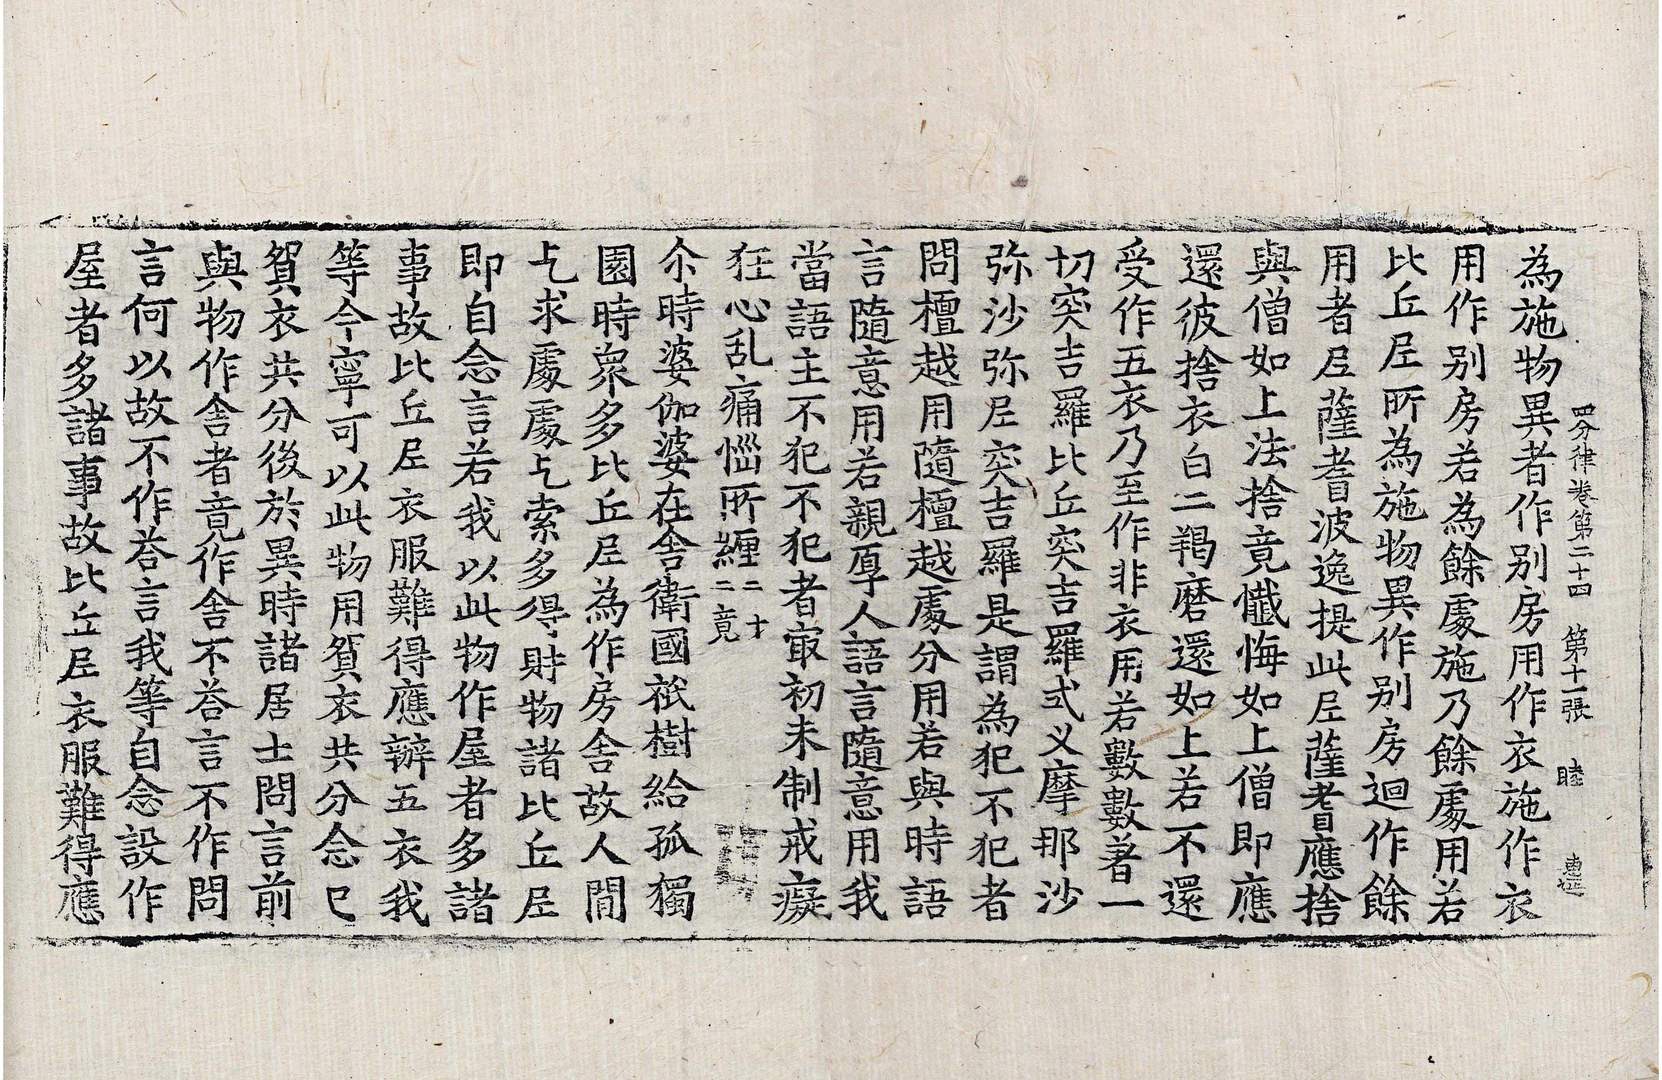 四分律卷第二十四　第十一張　睦
為施物異者作別房用作衣施作衣
用作別房若為餘處施乃餘處用若
比丘尼所為施物異作別房迴作餘
用者尼薩耆波逸提此尼薩耆應捨
與僧如上法捨竟懺悔如上僧即應
還彼捨衣白二羯磨還如上若不還
受作五衣乃至作非衣用若數數著一
切突吉羅比丘突吉羅式义摩那沙
弥沙弥尼突吉羅是謂為犯不犯者
問檀越用隨檀越處分用若與時語
言隨意用若親厚人語言隨意用我
當語主不犯不犯者㝡初未制戒癡
狂心乱痛惱所纏二十二竟
尒時婆伽婆在舍衛國祇樹給孤獨
園時眾多比丘尼為作房舍故人間
乞求處處乞索多得財物諸比丘尼
即自念言若我以此物作屋者多諸
事故比丘尼衣服難得應辦五衣我
等今寧可以此物用貿衣共分念已
貿衣共分後於異時諸居士問言前
與物作舍者竟作舍不荅言不作問
言何以故不作荅言我等自念設作
屋者多諸事故比丘尼衣服難得應